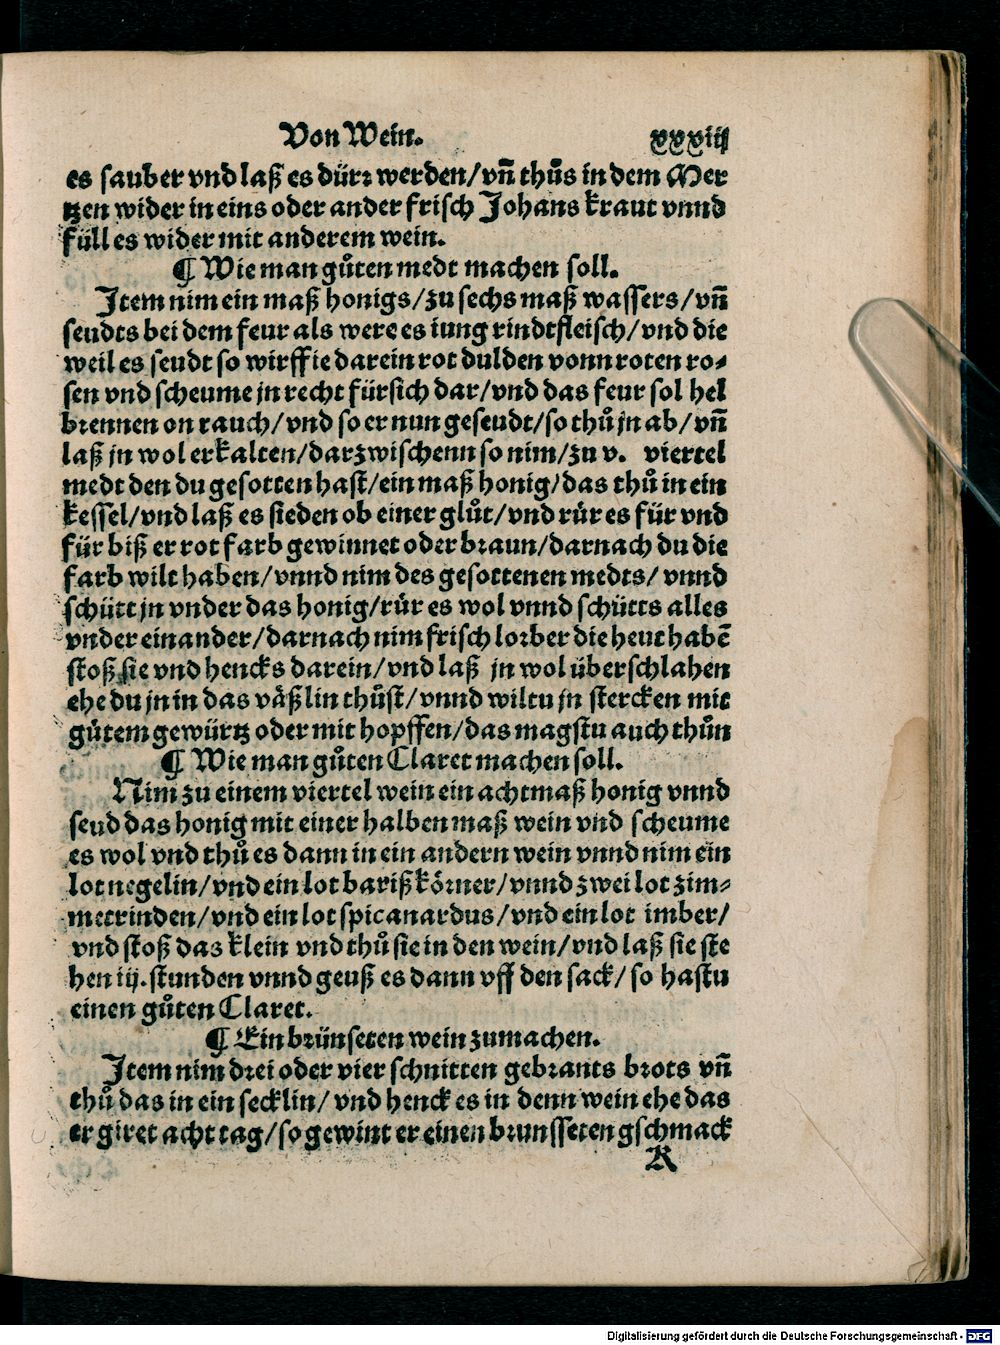 Von Wein. xxxiiij
es sauber vnd laß es dürꝛ werden/vñ thůs in dem Mer
tzen wider in eins oder ander frisch Johans kraut vnnd
füll es wider mit anderem wein.
¶ Wie man gůten medt machen soll.
Jtem nim ein maß honigs/zu sechs maß wassers/vñ
seudts bei dem feur als were es iung rindtfleisch/vnd die
weil es seudt so wirff ie darein rot dulden vonn roten ro⸗
sen vnd scheume jn recht fürsich dar/vnd das feur sol hel
bꝛennen on rauch/vnd so er nun geseudt/so thů jn ab/vñ
laß jn wol erkalten/darzwischenn so nim/zu v. viertel
medt den du gesotten hast/ein maß honig/das thů in ein
kessel/vnd laß es sieden ob einer glůt/vnd rür es für vnd
für biß er rot farb gewinnet oder bꝛaun/darnach du die
farb wilt haben/vnnd nim des gesottenen medts/vnnd
schütt jn vnder das honig/rür es wol vnnd schütts alles
vnder einander/darnach nim frisch loꝛber die heut habē
stoß sie vnd hencks darein/vnd laß jn wol überschlahen
ehe du jn in das väßlin thůst/vnnd wiltu jn stercken mit
gůtem gewürtz oder mit hopffen/das magstu auch thůn
¶ Wie man gůten Claret machen soll.
Nim zu einem viertel wein ein achtmaß honig vnnd
seud das honig mit einer halben maß wein vnd scheume
es wol vnd thů es dann in ein andern wein vnnd nim ein
lot negelin/vnd ein lot bariß köꝛner/vnnd zwei lot zim⸗
metrinden/vnd ein lot spicanardus/vnd ein lot imber/
vnd stoß das klein vnd thů sie in den wein/vnd laß sie ste
hen iij. stunden vnnd geuß es dann vff den sack/so hastu
einen gůten Claret.
¶ Ein bꝛünseten wein zumachen.
Jtem nim dꝛei oder vier schnitten gebꝛants bꝛots vñ
thů das in ein secklin/vnd henck es in denn wein ehe das
er giret acht tag/so gewint er einen bꝛunsseten gschmack
K
Digitalisierung gefördert durch die Deutsche Forschungsgemeinschaft - DFG